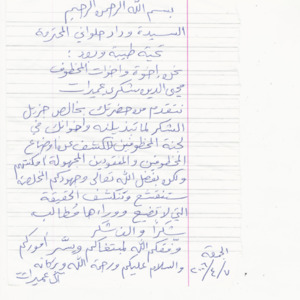 بسم الله الرحمن الرحيم
السيدة وداد حلواني المحترمة
تحية طيبة وورد :
نحن إخوة واخوات المخطوف
محي الدين شكري عميرات
نتقدم من حضرتك بخالص جزيل
الشكر لما تبذلينه واخوانك في
لجنة المخطوفين للكشف عن اوضاع
المخطوفين والمفقودين المجهولة
ولكن بفضل الله تعالى وجهودكم المخلصة
ستنقشع وتنكشف الحقيقة
التي لا تضيع ووراءها مطالب
شكراً والف شكر
وفقكم الله لمبتغاكم ويسّر أموركم
والسلام عليكم ورحمة الله وبركاته
الجمعة
٧/٤/٢٠٠٦